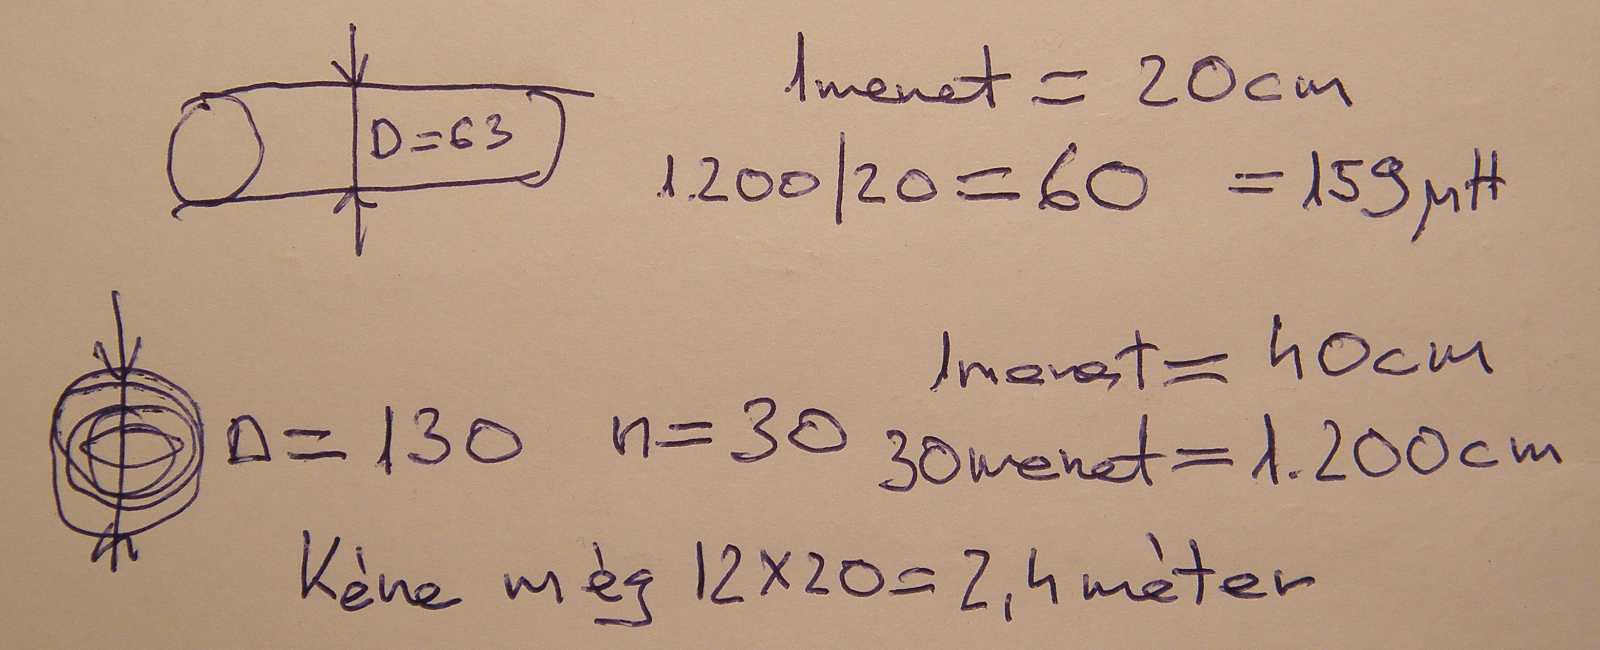 1menet = 20cm
D=63
1.200/20=60 =159µH
1menet= 40cm
D=130 n=30 30menet=1.200cm
Kéne még 12x20=2,4méter